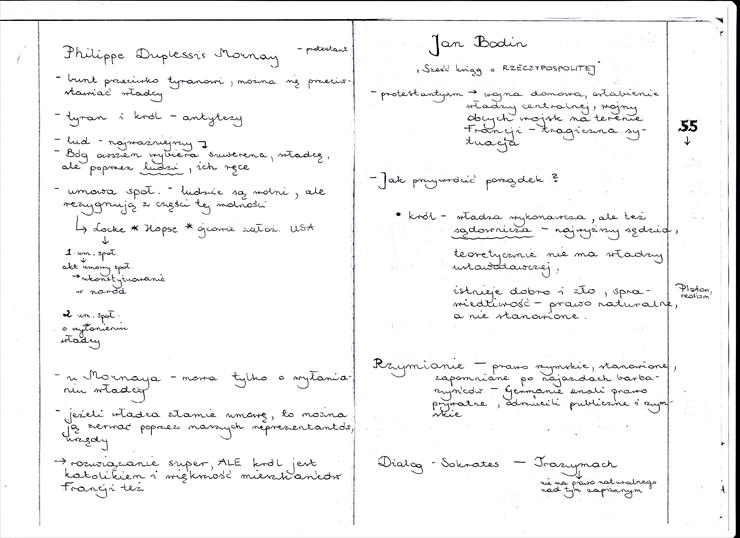 Philippe Duplessis Mornay - protestant
- bunt przeciwko tyranowi, można się przeciw-
stawiać władcy
- tyran i król - antytezy
- lud - najważniejszy
- Bóg owszem wybiera suwerena, władcę,
ale poprzez ludzi, ich ręce
- umowa społ. - ludzie są wolni, ale
rezygnują z części tej wolności
Locke * Hopse * ojcowie założ. USA
1 um. społ.
akt umowy społ.
→ ukonstytuowanie
w naród
2 um. społ.
o wyłonieniu
władcy
- u Mornaya - mowa tylko o wyłania-
niu władcy
- jeżeli władca złamie umowę, to można
ją zerwać poprzez naszych reprezentantów,
urzędy
→ rozwiązanie super, ALE król jest
katolikiem i większość mieszkańców
Francji też
Jan Bodin
"Sześć ksiąg o RZECZYPOSPOLITEJ"
- protestantyzm → wojna domowa, osłabienie
władzy centralnej, wojny
obcych wojsk na terenie
Francji - tragiczna sy-
tuacja
- Jak przywrócić porządek?
• król - władza wykonawcza, ale też
sądownicza - najwyższy sędzia,
teoretycznie nie ma władzy
ustawodawczej,
istnieje dobro i zło, spra-
wiedliwość - prawo naturalne,
a nie stanowione.
Rzymianie - prawo rzymskie, stanowione,
zapomniane po najazdach barba-
rzyńców - Germanie znali prawo
prywatne, odrzucili publiczne i rzym-
skie
Dialog - Sokrates - Trazymach
nie ma prawo naturalnego
nad tym zapisanym
55
Platon,
realizm